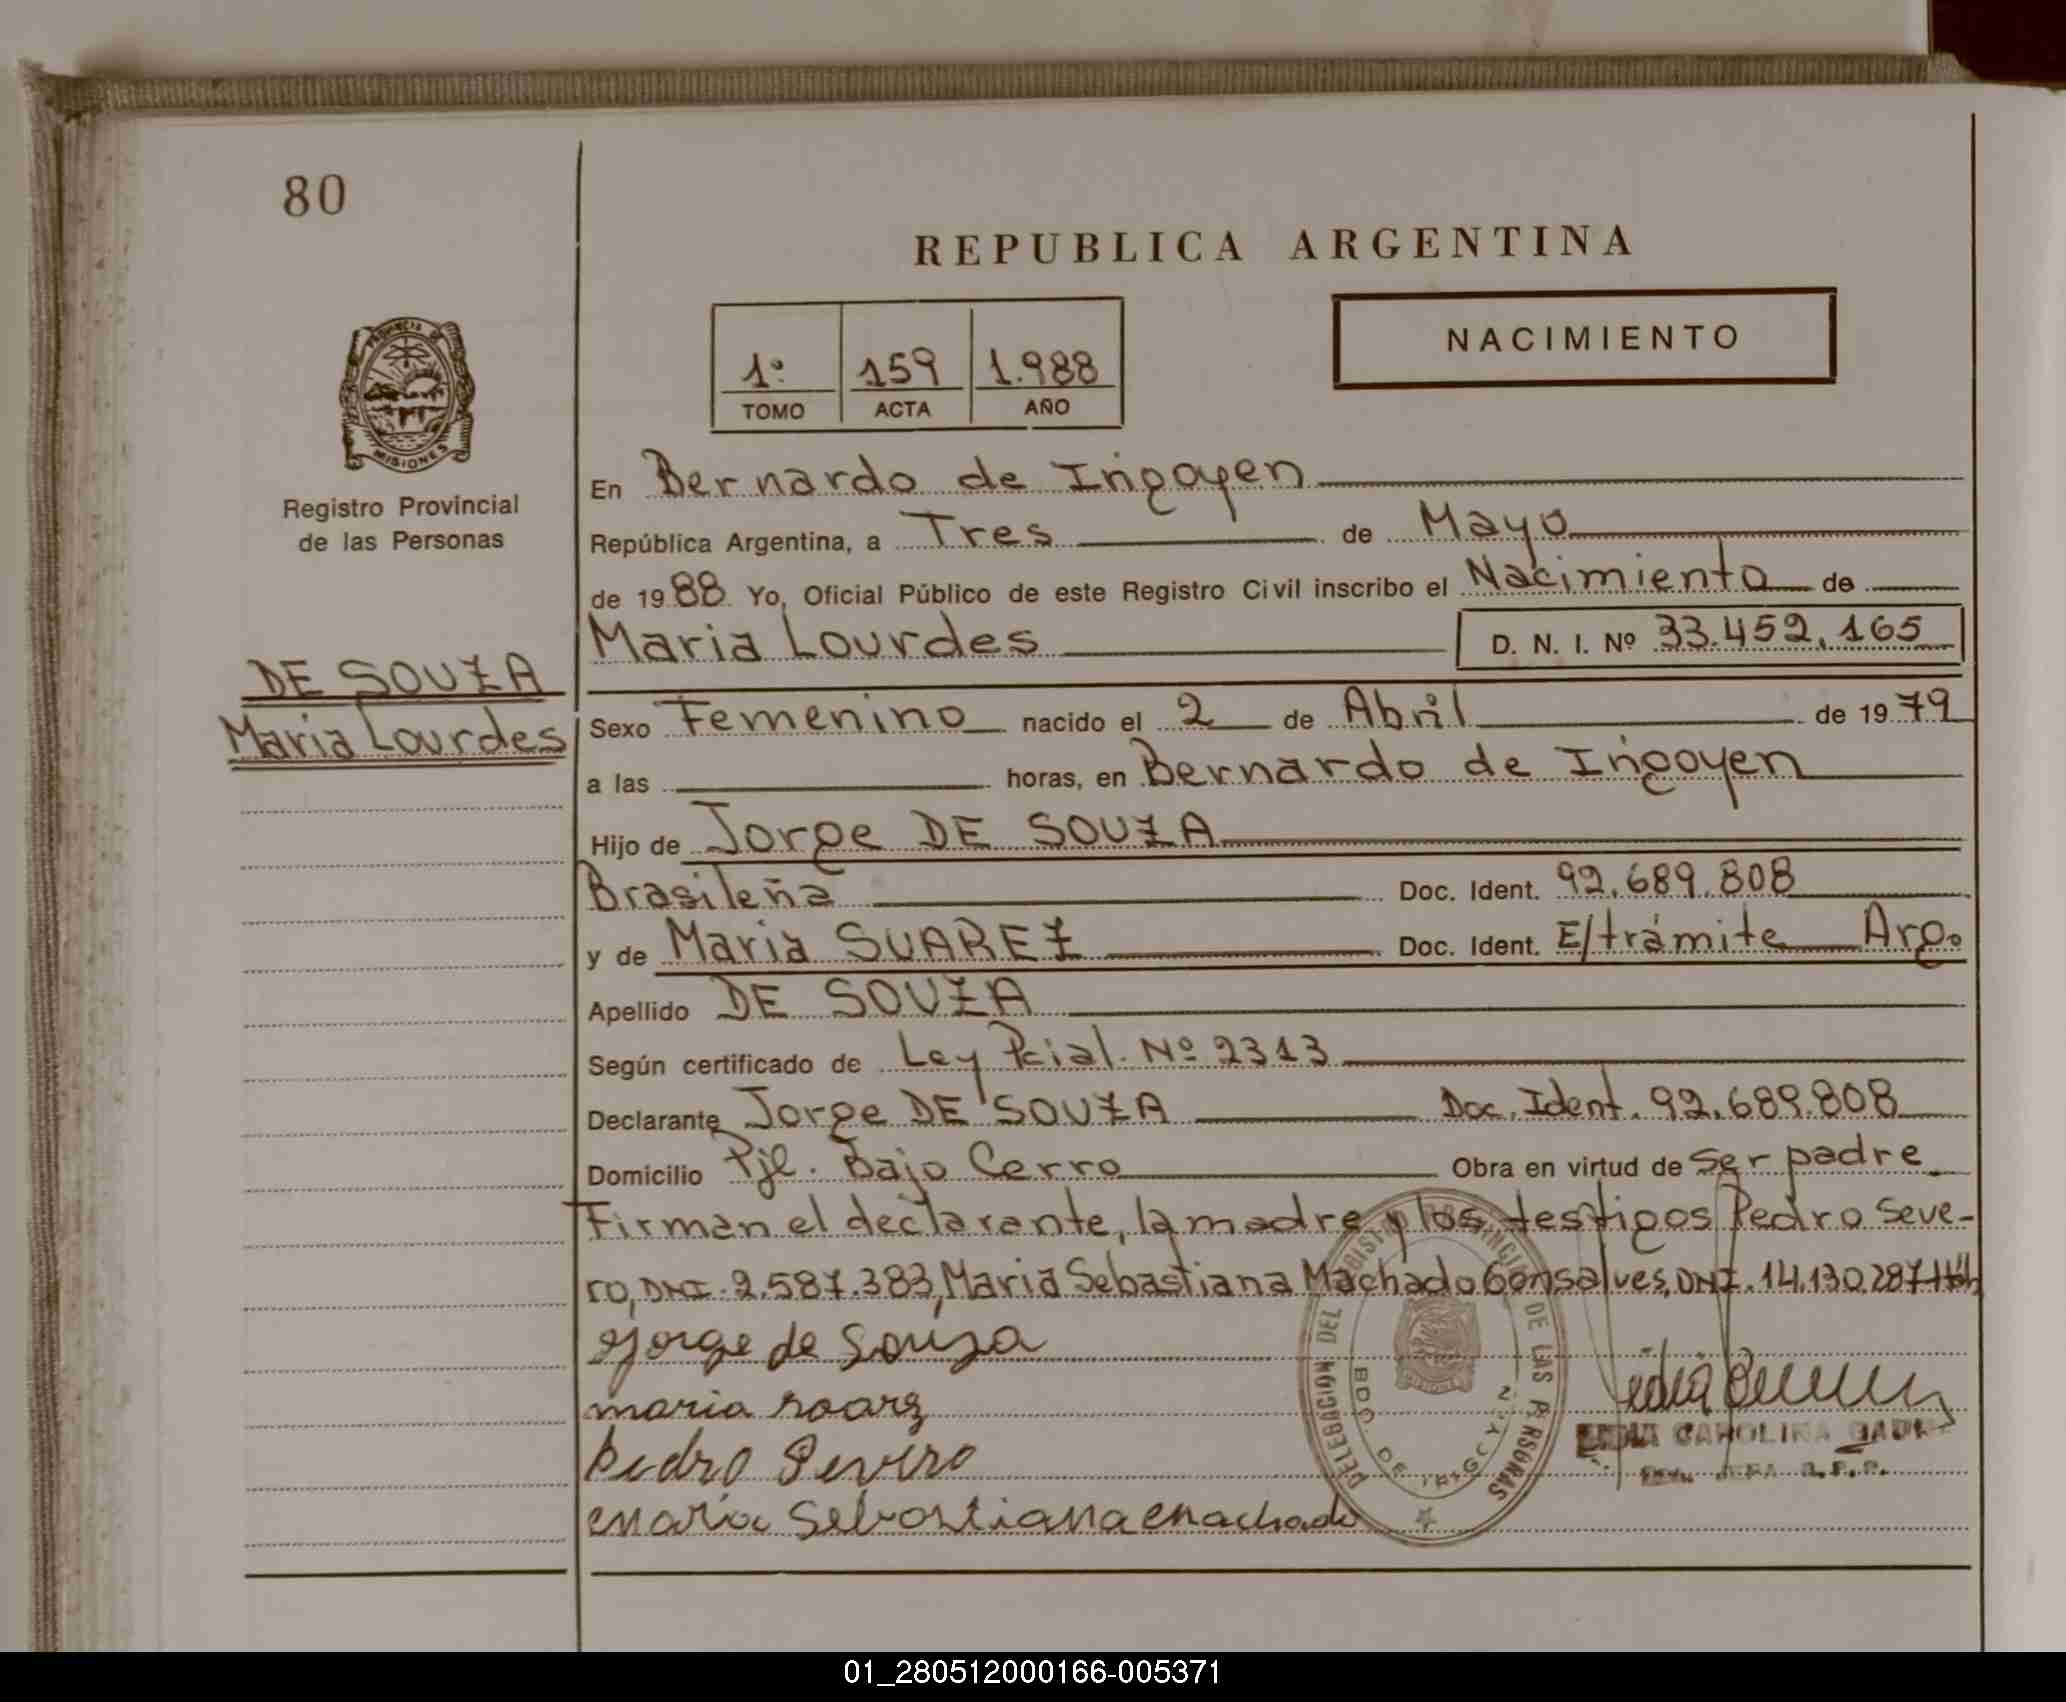 80
REPUBLICA ARGENTINA
PROVINCIA DE
MISIONES
Registro Provincial
de las Personas
1º 159 1.988
TOMO ACTA AÑO
NACIMIENTO
En Bernardo de Irigoyen
República Argentina, a Tres de Mayo
de 1988 Yo, Oficial Público de este Registro Civil inscribo el Nacimiento de
Maria Lourdes D. N. I. Nº 33.452.165
DE SOUZA
Maria Lourdes
Sexo Femenino nacido el 2 de Abril de 1979
a las horas, en Bernardo de Irigoyen
Hijo de Jorge DE SOUZA
Brasileña Doc. Ident. 92.689.808
y de Maria SUAREZ Doc. Ident. E/trámite Arg.
Apellido DE SOUZA
Según certificado de Ley Pcial. Nº 2313
Declarante Jorge DE SOUZA Doc. Ident. 92.689.808
Domicilio Pje. Bajo Cerro Obra en virtud de ser padre
Firman el declarante, la madre y los testigos Pedro Seve-
ro, DNI. 2.587.383, Maria Sebastiana Machado Gonsalves, DNI. 14.130.287
Jorge de Souza
maria soarz
Pedro Severo
maria Sebastiana machado
DELEGACION DEL REGISTRO PROVINCIAL DE LAS PERSONAS
BDO. DE IRIGOYEN
CAROLINA
01_280512000166-005371